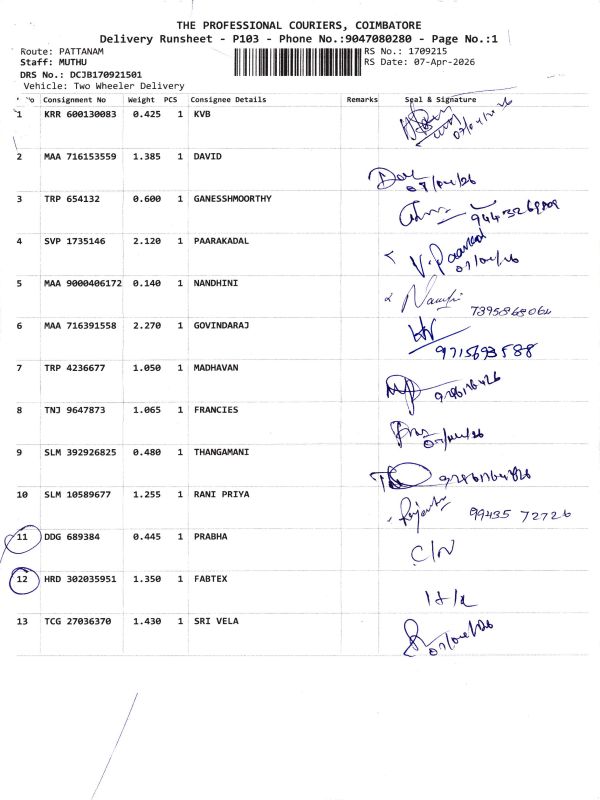 THE PROFESSIONAL COURIERS, COIMBATORE
Delivery Runsheet - P103 - Phone No.:9047080280 - Page No.:1
Route: PATTANAM
Staff: MUTHU
DRS No.: DCJB170921501
Vehicle: Two Wheeler Delivery
RS No.: 1709215
RS Date: 07-Apr-2026
No Consignment No Weight PCS Consignee Details Remarks Seal & Signature
1 KRR 600130083 0.425 1 KVB
2 MAA 716153559 1.385 1 DAVID
3 TRP 654132 0.600 1 GANESSHMOORTHY
4 SVP 1735146 2.120 1 PAARAKADAL
5 MAA 9000406172 0.140 1 NANDHINI
6 MAA 716391558 2.270 1 GOVINDARAJ 9715693588
7 TRP 4236677 1.050 1 MADHAVAN
8 TNJ 9647873 1.065 1 FRANCIES
9 SLM 392926825 0.480 1 THANGAMANI
10 SLM 10589677 1.255 1 RANI PRIYA 99435 72726
11 DDG 689384 0.445 1 PRABHA C/N
12 HRD 302035951 1.350 1 FABTEX
13 TCG 27036370 1.430 1 SRI VELA